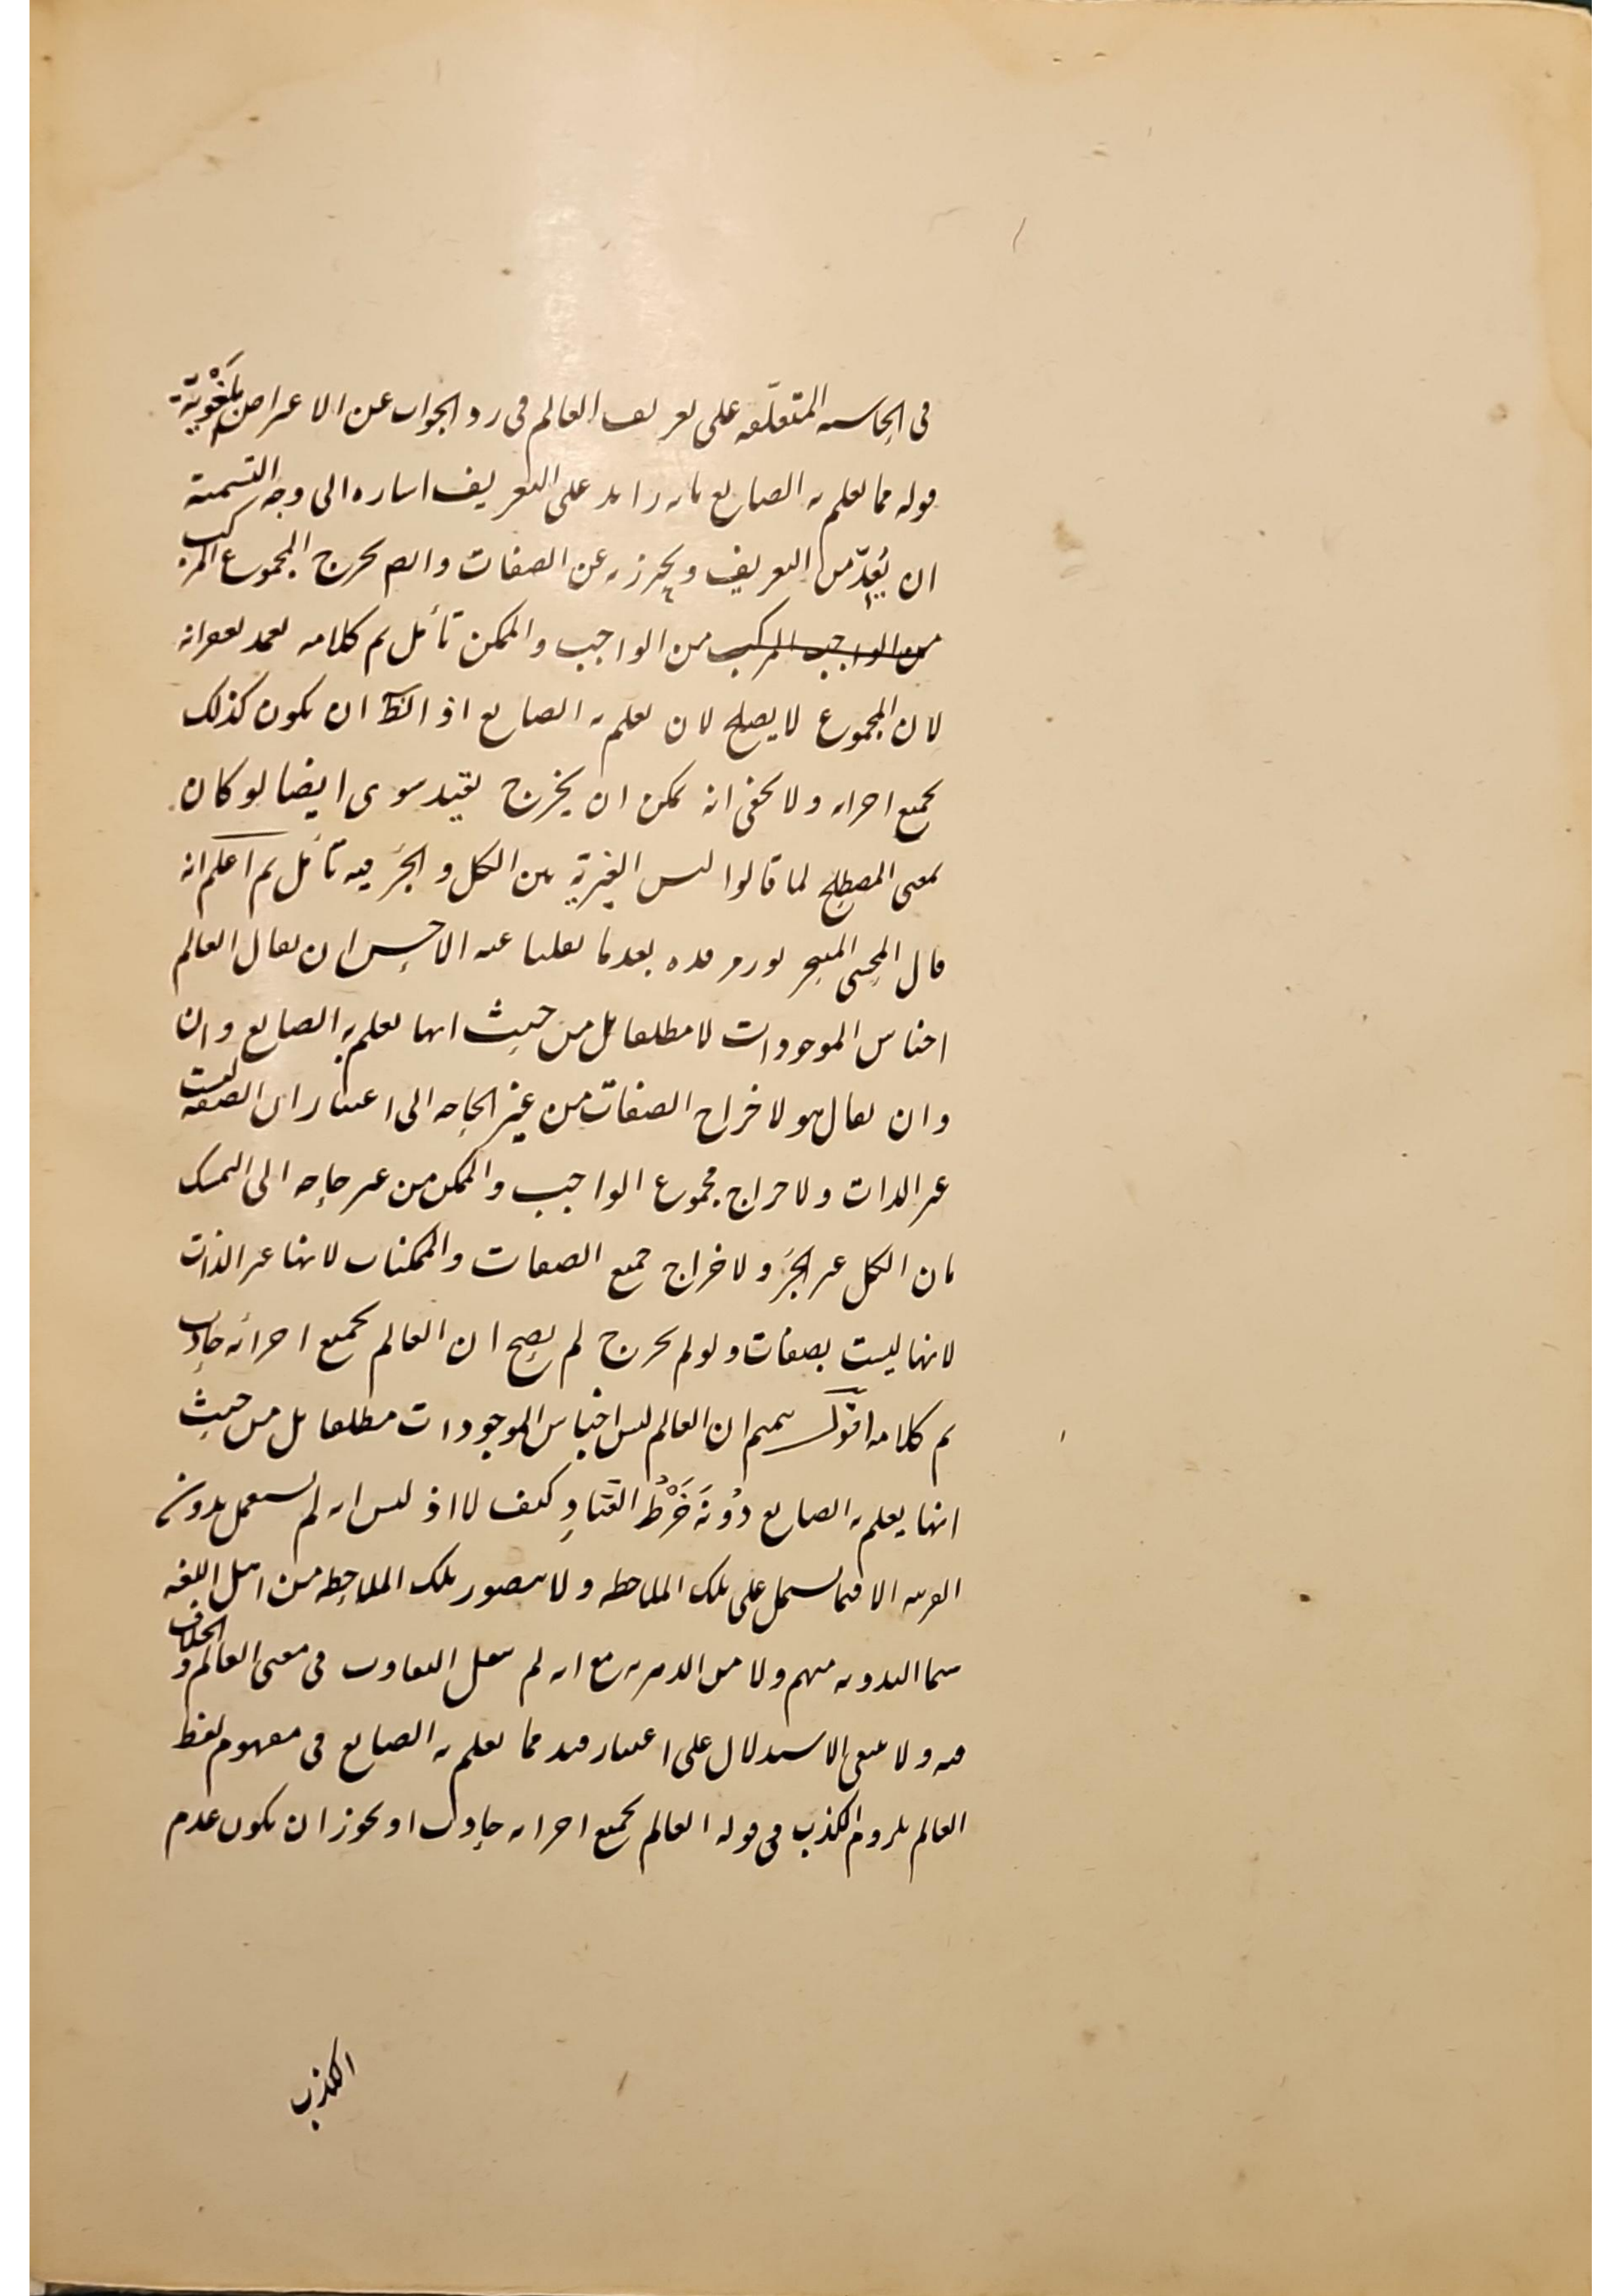 في الحاشية المتعلّقة على تعريف العالم في رد الجواب عن الاعتراض بلغويّة
قوله مما يعلم به الصانع بانه زايد على التعريف اشاره الى وجه التسمية
ان يُعدّ من التعريف ويحترز به عن الصفات والص يخرج المجموع المركب
من الواجب المركب من الواجب والممكن تأمل تم كلامه
لان المجموع لا يصلح لان يعلم به الصانع اذ الظ ان يكون كذلك
بجميع اجزائه ولا يخفى انه يمكن ان يخرج بقيد سوى ايضا لو كان
بمعنى المصطلح لما قالوا ليس الغيرية بين الكل والجزء فيه تأمل ثم اعلم انه
قال المحشي المتبحر نور مرقده بعدما نقلنا عنه الاحسن ان يقال العالم
اجناس الموجودات لا مطلقا بل من حيث انها يعلم به الصانع وان
وان يقال هو لاخراج الصفات من غير الحاجه الى اعتبار ان الصفه ليست
غير الذات ولاخراج مجموع الواجب والممكن من غير حاجه الى التمسك
بان الكل غير الجزء ولاخراج جميع الصفات والممكنات لانها غير الذات
لانها ليست بصفات ولو لم يخرج لم يصح ان العالم بجميع اجزائه حادث
تم كلامه اقول تتميم ان العالم ليس اجناس الموجودات مطلقا بل من حيث
انها يعلم به الصانع دُونَه خَرْطُ القتادِ كيف لا اذ ليس انه لم يستعمل بدون
القرينه الا فيما يشمل على تلك الملاحظه ولا يتصور تلك الملاحظه من اهل اللغه
سيما البدويه منهم ولا من الدهريه مع انه لم ينقل التفاوت في معنى العالم والخلاف
فيه ولا ينبغي الاستدلال على اعتبار قيد مما يعلم به الصانع في مفهوم لفظ
العالم بلزوم الكذب في قوله العالم بجميع اجزائه حادث او يجوز ان يكون عدم
الكذب